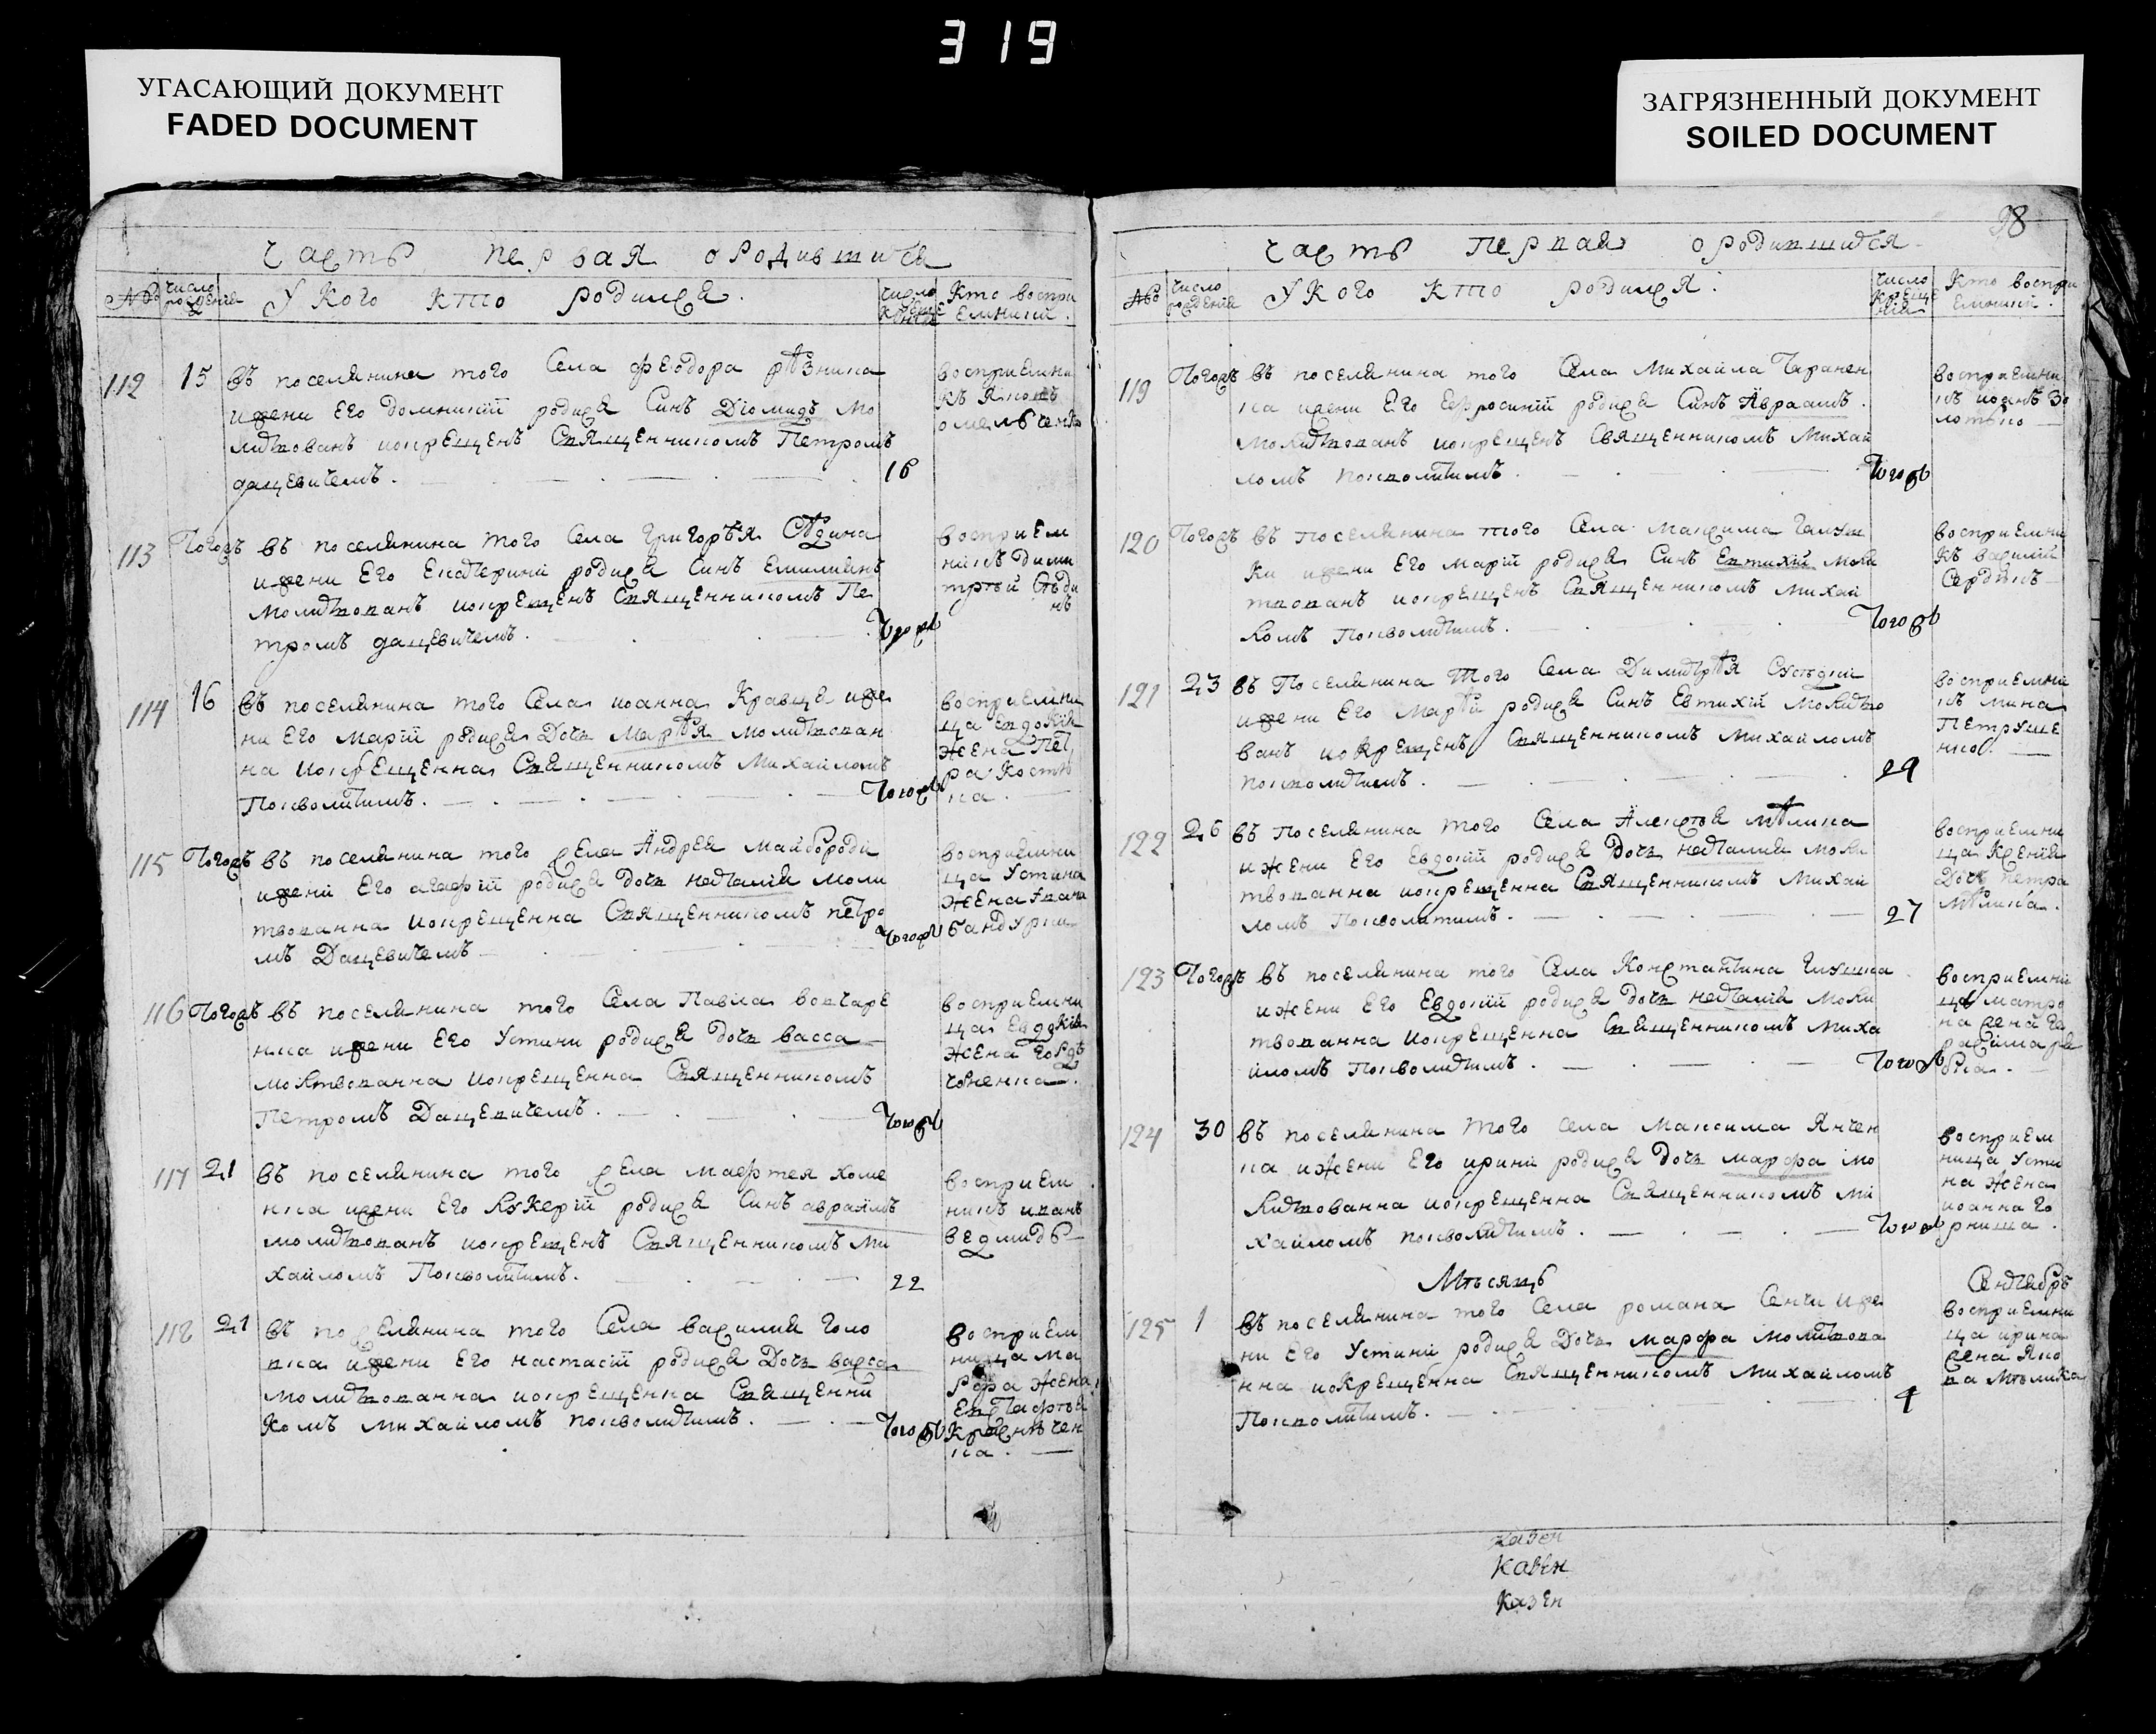 319
УГАСАЮЩИЙ ДОКУМЕНТ
FADED DOCUMENT
ЗАГРЯЗНЕННЫЙ ДОКУМЕНТ
SOILED DOCUMENT
часть первая о родившихся
№ число рождения У кого кто родился число крещения Кто восприемники
112 15 въ поселянина того Села Феодора рѣзника
и жени Его домникіи родися Синъ Діомидъ мо
литвованъ и окрещенъ Священникомъ Петромъ
дацевичемъ. 16
восприемни
къ Яковъ
омельченко
113 Тогожъ въ поселянина того Села Григорѣя Сѣдина
и жени Его Екатерини родися Синъ Емилиянъ
молитвованъ и окрещенъ Священникомъ Пе
тромъ дацевичемъ. Тогожъ
восприем
никъ Дими
трѣй Сѣди
нъ
114 16 въ поселянина того Села иоанна Кравця и же
ни Его Маріи родися Дочъ Марѣя молитвован
на и окрещенна Священникомъ Михайломъ
Посполитимъ. Тогожъ
восприемни
ца Евдокія
жена Пет
ра Костю
ка.
115 Тогожъ въ поселянина того Села Андрея Майбороди
и жени Его агафіи родися дочъ наталія моли
твованна и окрещенна Священникомъ петро
мъ Дацевичемъ Тогожъ
восприемни
ца Устина
жена
бандурки
116 Тогожъ въ поселянина того Села Павла вовчаре
нка и жени Его Устини родися дочъ васса
молтвованна и окрещенна Священникомъ
Петромъ Дацевичемъ. Тогожъ
восприемни
ца Евдокія
жена
117 21 въ поселянина того Села Матфтея хоме
нка и жени Его Лукеріи родися Синъ авраамъ
молитвованъ и окрещенъ Священникомъ Ми
хайломъ Посполитимъ. 22
восприем
никъ иванъ
ведмидь
118 21 въ поселянина того Села василия Голо
вка и жени Его настасіи родися Дочъ васса
молитвованна и окрещенна Священни
комъ михайломъ посполитимъ. Тогожъ
восприем
ница Ма
рфа жена
Евстафтея
ка.
98
часть первая о родившихся
№ число рождения У кого кто родился число крещения Кто восприемники.
119 Тогожъ въ поселянина того Села Михайла Таранен
ка и жени Его Ефросиніи родися Синъ Авраамъ.
Молитвованъ и окрещенъ Священникомъ Михай
ломъ посполитимъ. Тогожъ
восприемни
къ иоанъ Зо
лотько
120 Тогожъ въ поселянина того Села Максима Галуш
ки и жени Его Маріи родися Синъ Евтихій моли
твованъ и окрещенъ Священникомъ Михай
ломъ Посполитимъ. Тогожъ
восприемни
къ василий
Сердюкъ
121 23 въ Поселянина того Села Димитрѣя
и жени Его Марѣи родися Синъ Евтихій Молитво
ванъ и окрещенъ Священникомъ Михайломъ
посполитимъ. 24
восприемни
къ мина
Петруше
нко.
122 26 въ поселянина того Села Алексѣя мѣлика
и жени Его Евдокіи родися дочъ наталия моли
твованна и окрещенна Священникомъ Михай
ломъ Посполитимъ. 27
восприемни
ца Ксенія
Дочъ петра
Мѣлика.
123 Тогожъ въ поселянина того Села Константина Галушка
и жени Его Евдокіи родися дочъ наталія моли
твованна и окрещенна Священникомъ Миха
йломъ Посполитимъ. Тогожъ
восприемни
ца матро
на жена Ге
расима
124 30 въ поселянина того села максима Янчен
ка и жени Его ирини родися дочъ марфа мо
литвованна и окрещенна Священникомъ ми
хайломъ посполитимъ. Тогожъ
восприем
ница Усти
на жена
иоанна Го
рниша.
Мѣсяцъ Сентябръ
125 1 въ поселянина того Села романа Сенчи и же
ни Его Устиніи родися Дочъ марфа молитвова
нна и окрещенна Священникомъ михайломъ
Посполитимъ. 4
восприемни
ца ирина
жена Яко
ва Мѣлика
казен
казен
казен